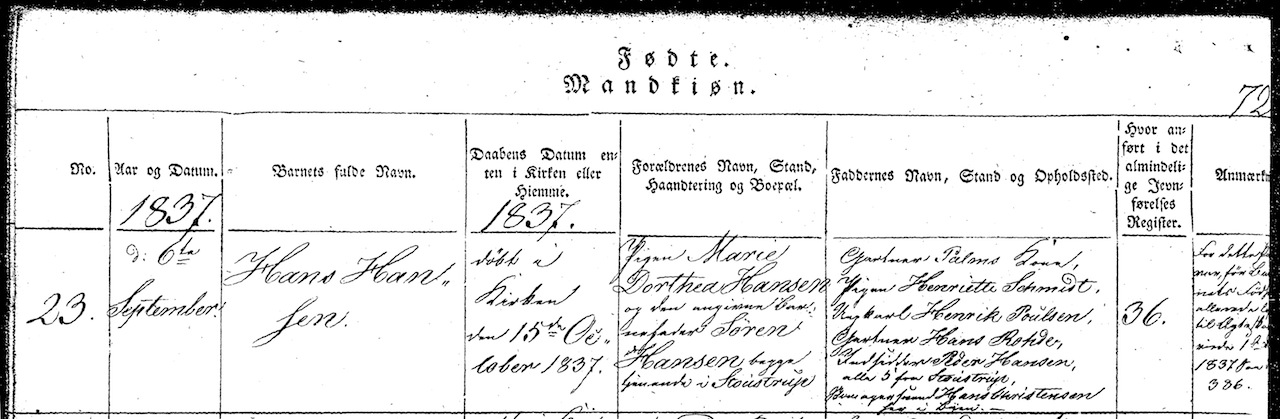 Fødte.
Mandkiøn.
72
No.
Aar og Datum.
1837.
Barnets fulde Navn.
Daabens Datum en-
ten i Kirken eller
Hiemme.
1837.
Forældrenes Navn, Stand,
Haandtering og Boepæl.
Faddernes Navn, Stand og Opholdssted.
Hvor an-
ført i det
almindeli-
ge Jevn-
førelses
Register.
Anmærkn
23.
d: 6te
September
Hans Han-
sen.
døbt i
Kirken
den 15de Oc-
tober 1837.
Pigen Marie
Dorthea Hansen
og den angivne Bar-
nefader Søren
Hansen begge
tjenende i Stoustrup
Gartner Palms Kone,
Pigen Henriette Schmidt,
Ungkarl Henrik Poulsen,
Gartner Hans Rohde,
Indsidder Peder Hansen,
alle 5 fra Stoustrup,
Hans Christensen
her i Byen.
36.
For dette
før
nets Fød
allerede
1837
386.